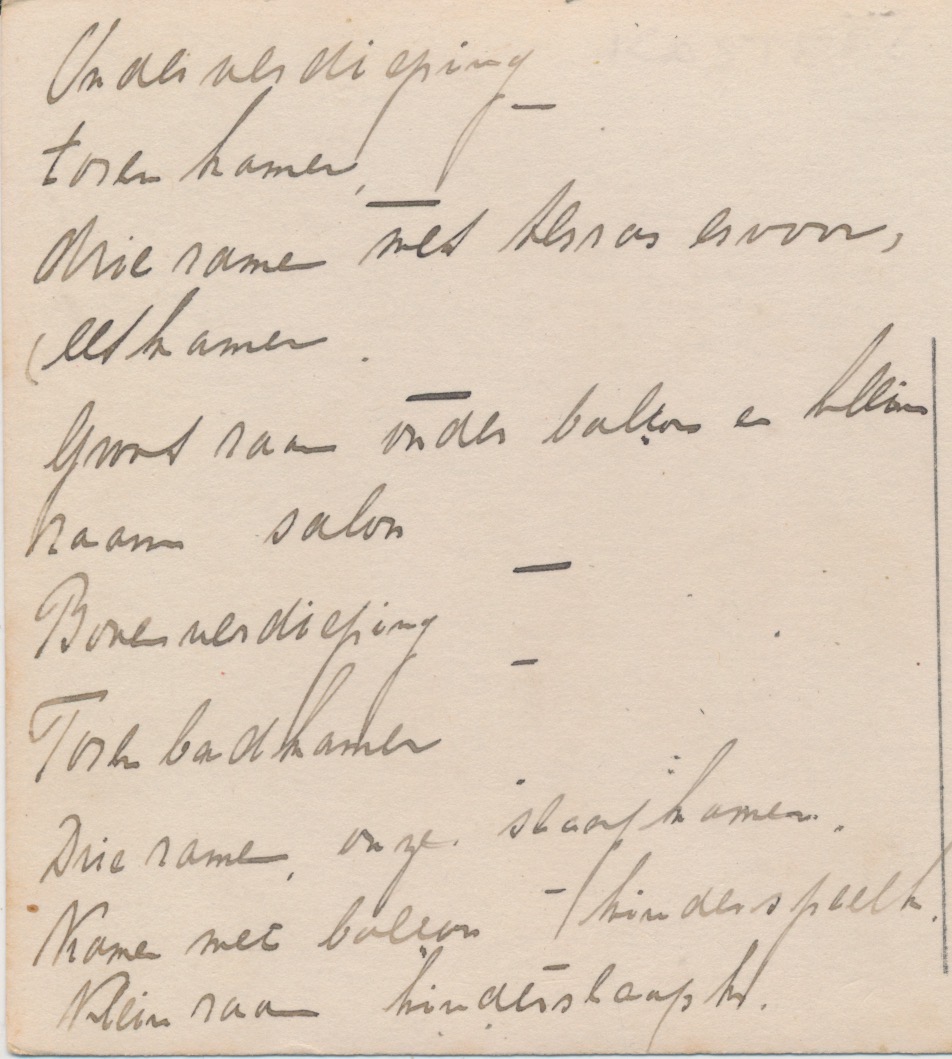 Onderverdieping
toren kamer,
drie ramen met terras ervoor,
(eetkamer.
Groot raam onder balcon en klein
raam salon
Bovenverdieping
Toren badkamer
Drie ramen, onze slaapkamer.
Kamer met balcon (kinderspeelk.
Klein raam kinderslaapk.